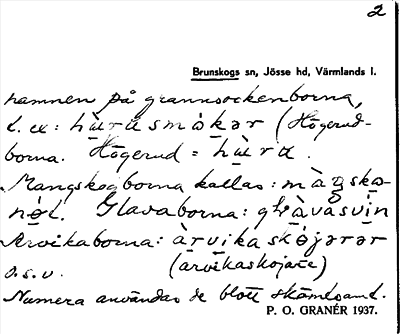 2
Brunskogs sn, Jösse hd, Värmlands l.
namnen på grannsockenborna,
t. ex: hùrusmǻkər (Högerud-
borna. Högerud = hùru.
Mangskogborna kallas: màŋskə-
nøt. Glavaborna: glàvasvin
Arvikaborna: àrvikaskøjarər
o.s.v. (arvikaskojare)
Numera användas de blott skämtsamt.
P. O. GRANÉR 1937.